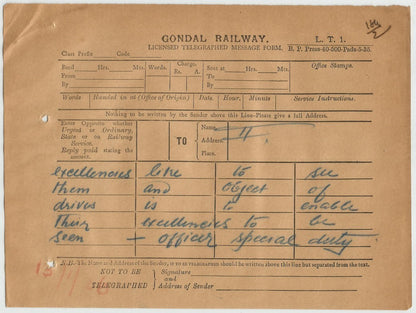 166/2
GONDAL RAILWAY. L. T. 1.
LICENSED TELEGRAPHED MESSAGE FORM. B. P. Press-40-500-Pads-5-35.
Class Prefix Code
Recd Hrs. Mts. Words. Charge. Sent at Hrs. Mts. Office Stamps.
From Rs. A. To
By By
Words Handed in at (Office of Origin) Date, Hour, Minute Service Instructions.
Nothing to be written by the Sender above this Line-Please give a full Address.
Enter Opposite whether
Urgent is Ordinary,
State or on Railway
Service.
Reply paid stating the
amount.
TO
Name,
Address.
Place.
excellencies like to see
them and object of
drives is to enable
Their excellencies to be
seen - officer special duty
N.B.-The Name and Address of the Sender, is to be TELEGRAPHED should be written above this line but separated from the text.
NOT TO BE
TELEGRAPHED
Signature
and
Address of Sender